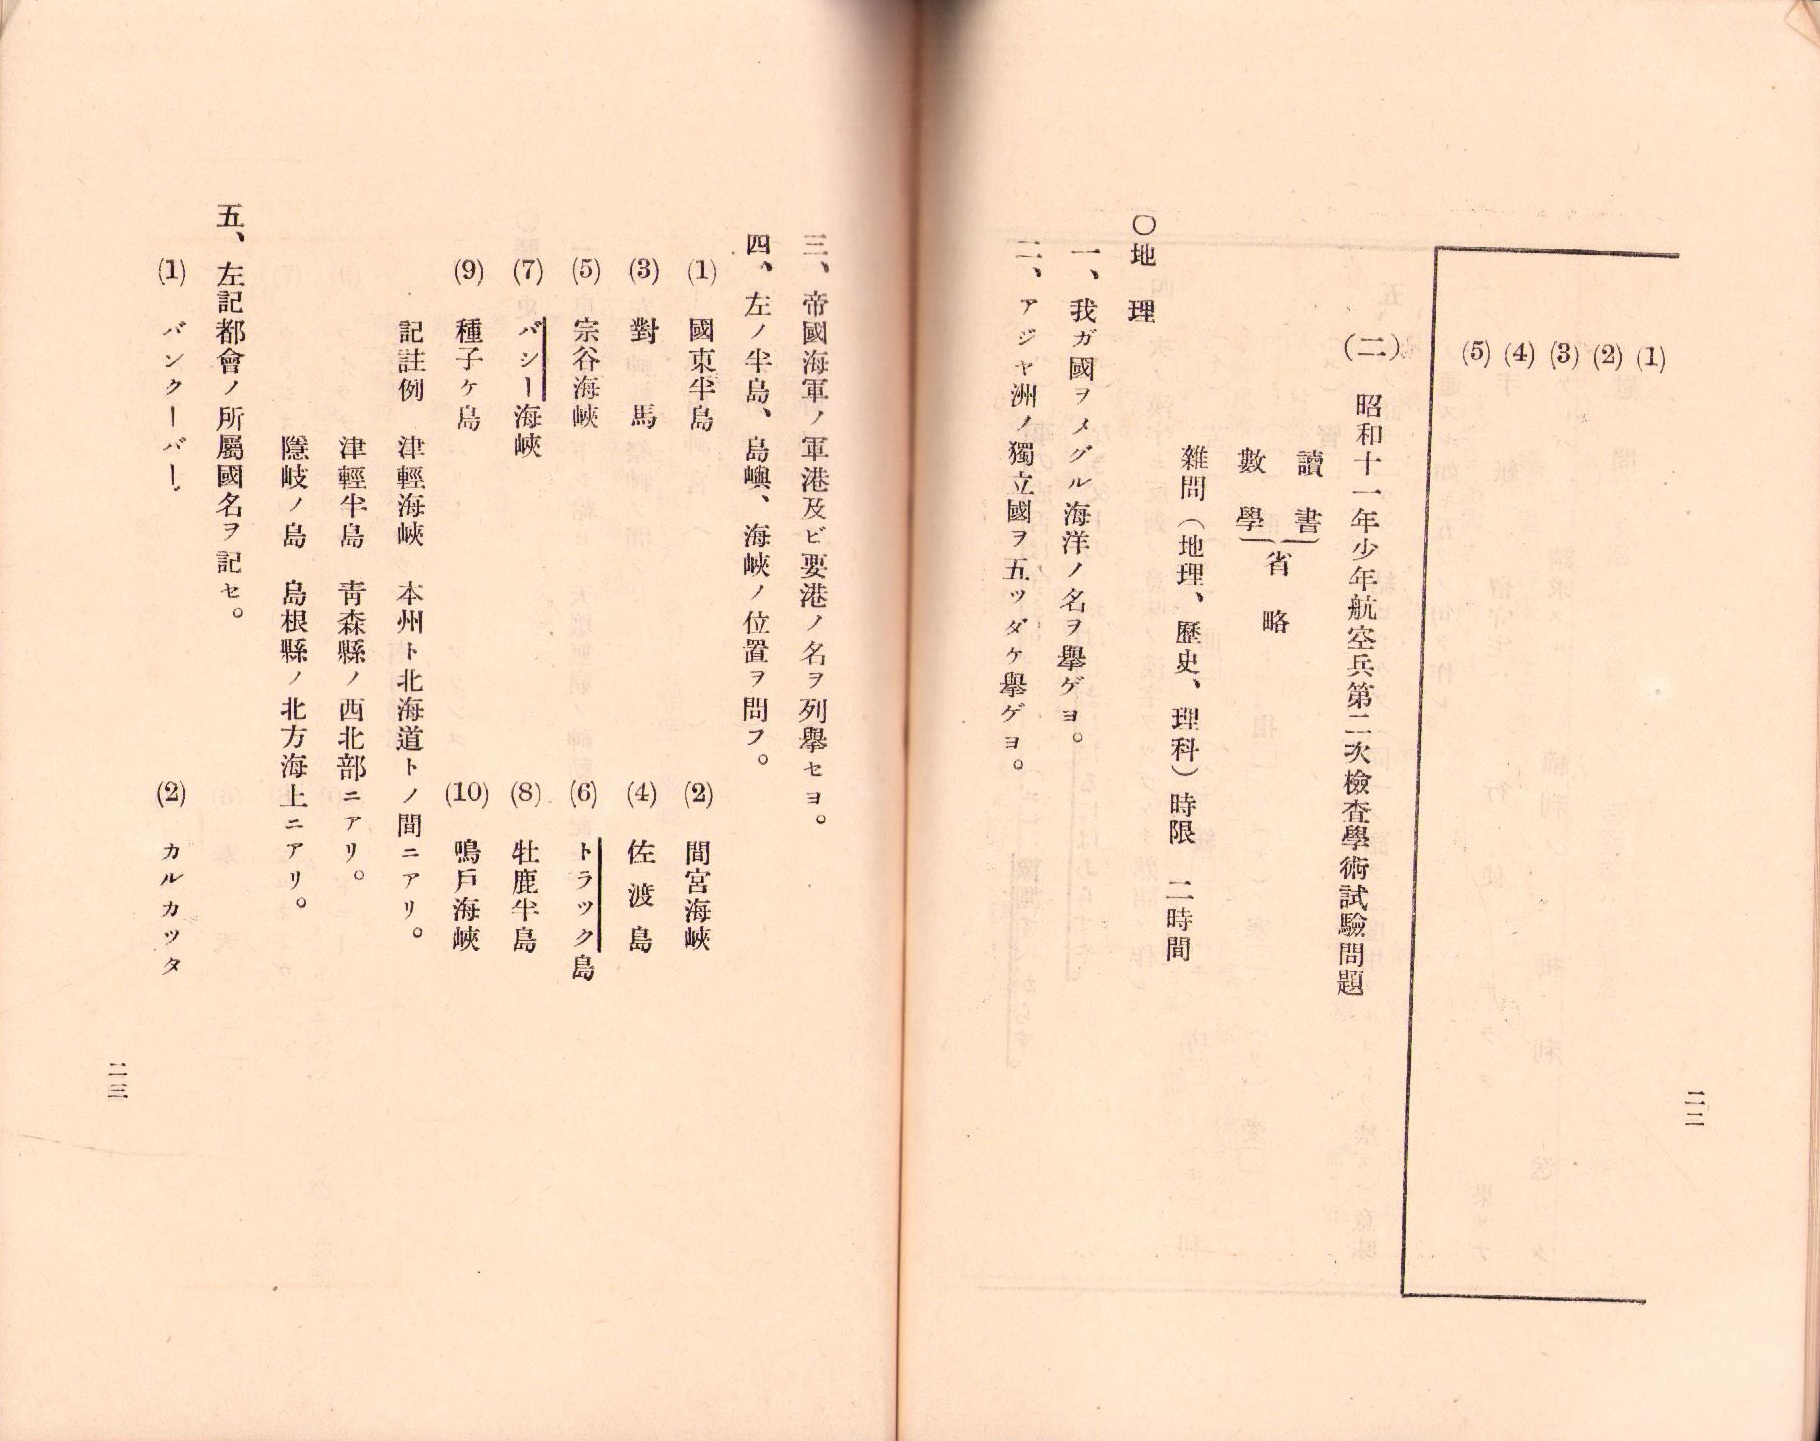 (1)
(2)
(3)
(4)
(5)
(二) 昭和十一年少年航空兵第二次檢査學術試驗問題
讀書
數學
省略
雜問(地理、歷史、理科)時限 二時間
〇地理
一、我ガ國ヲメグル海洋ノ名ヲ擧ゲヨ。
二、アジヤ洲ノ獨立國ヲ五ッダケ擧ゲヨ。
二二
三、帝國海軍ノ軍港及ビ要港ノ名ヲ列擧セヨ。
四、左ノ半島、島嶼、海峽ノ位置ヲ問フ。
(1) 國東半島 (2) 間宮海峽
(3) 對馬 (4) 佐渡島
(5) 宗谷海峽 (6) トラック島
(7) バシー海峽 (8) 牡鹿半島
(9) 種子ヶ島 (10) 鳴戶海峽
記註例 津輕海峽 本州ト北海道トノ間ニアリ。
津輕半島 靑森縣ノ西北部ニアリ。
隱岐ノ島 島根縣ノ北方海上ニアリ。
五、左記都會ノ所屬國名ヲ記セ。
(1) バンクーバー (2) カルカッタ
二三